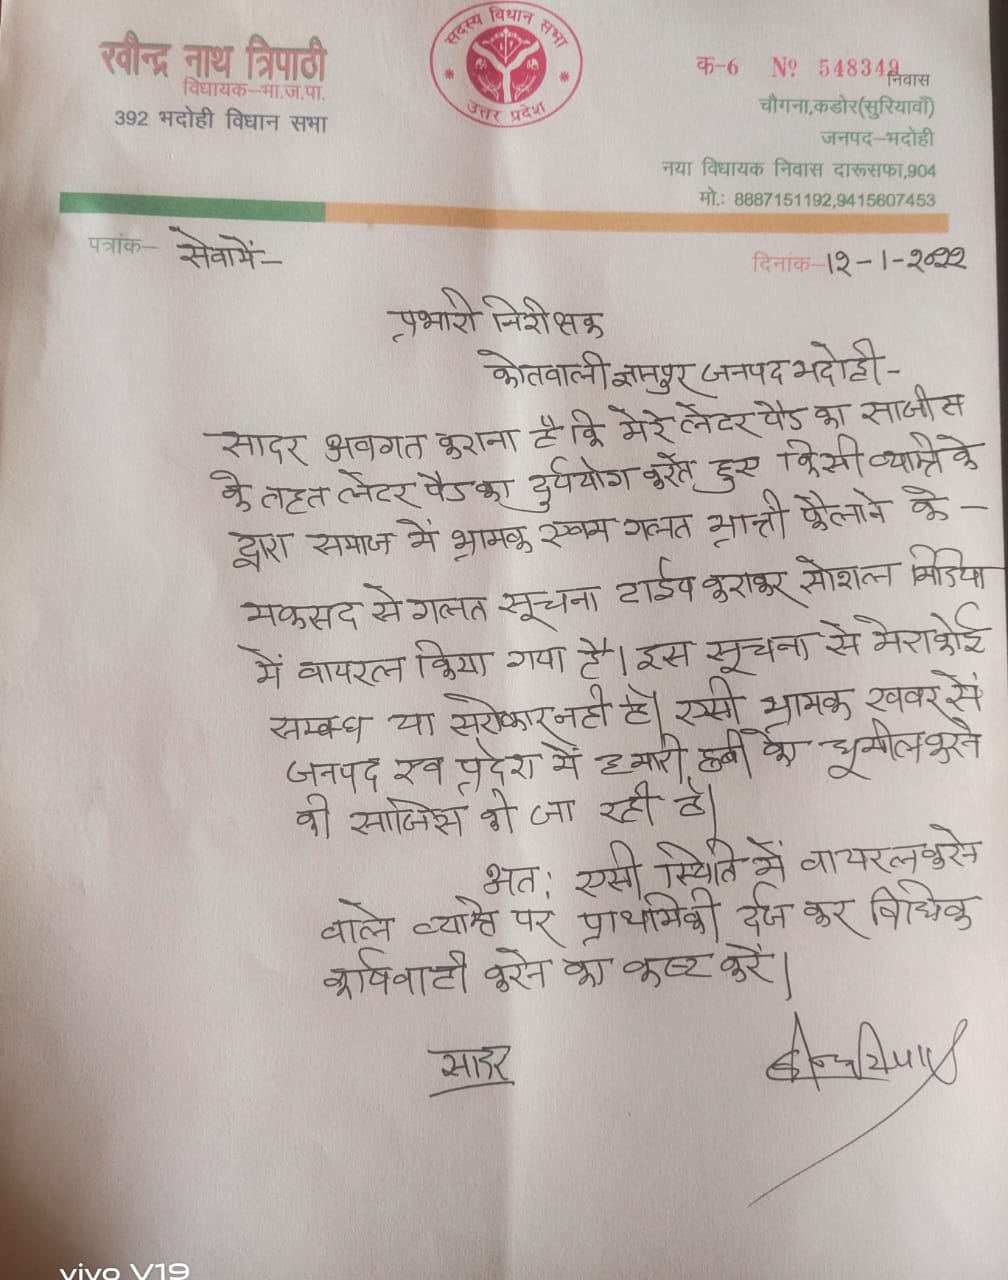 रवीन्द्र नाथ त्रिपाठी
विधायक–भा.ज.पा.
392 भदोही विधान सभा
सदस्य विधान सभा
उत्तर प्रदेश
क-6 Nº 548349
निवास
चौगना,कडोर(सुरियावाँ)
जनपद–भदोही
नया विधायक निवास दारूसफा,904
मो.: 8887151192,9415607453
पत्रांक– सेवामें–
दिनांक–12-1-2022
प्रभारी निरीक्षक
कोतवाली ज्ञानपुर जनपद भदोही–
सादर अवगत कराना है कि मेरे लेटर पैड का साजीस
के तहत लेटर पैड का दुर्पयोग करते हुए किसी व्यक्ति के
द्वारा समाज में भ्रामक एवम गलत भ्रान्ती फैलाने के –
मकसद से गलत सूचना टाईप कराकर सोशल मिडिया
में वायरल किया गया है। इस सूचना से मेरा कोई
सम्बन्ध या सरोकार नही है। एसी भ्रामक खबर से
जनपद एव प्रदेश में हमारी छबी को धूमील करने
की साजिस की जा रही है।
अत: एसी स्थिति में वायरल करने
वाले व्यक्ति पर प्राथमिकी दर्ज कर विधिक
कार्यवाही करने का कष्ट करें।
सादर
vivo V19